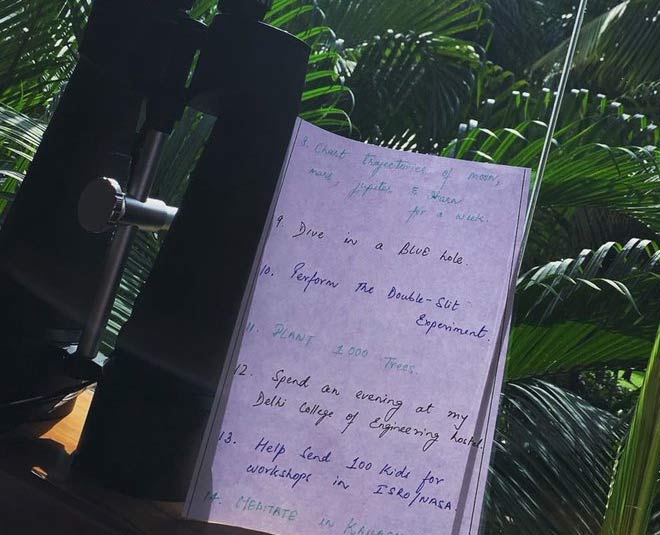 8. Chart trajectories of moon,
mars, jupiter & Saturn
for a week.
9. Dive in a BLUE hole.
10. Perform The Double-Slit
Experiment.
11. PLANT 1000 Trees.
12. Spend an evening at my
Delhi College of Engineering hostel.
13. Help Send 100 Kids for
workshops in ISRO/NASA.
14. MEDITATE in